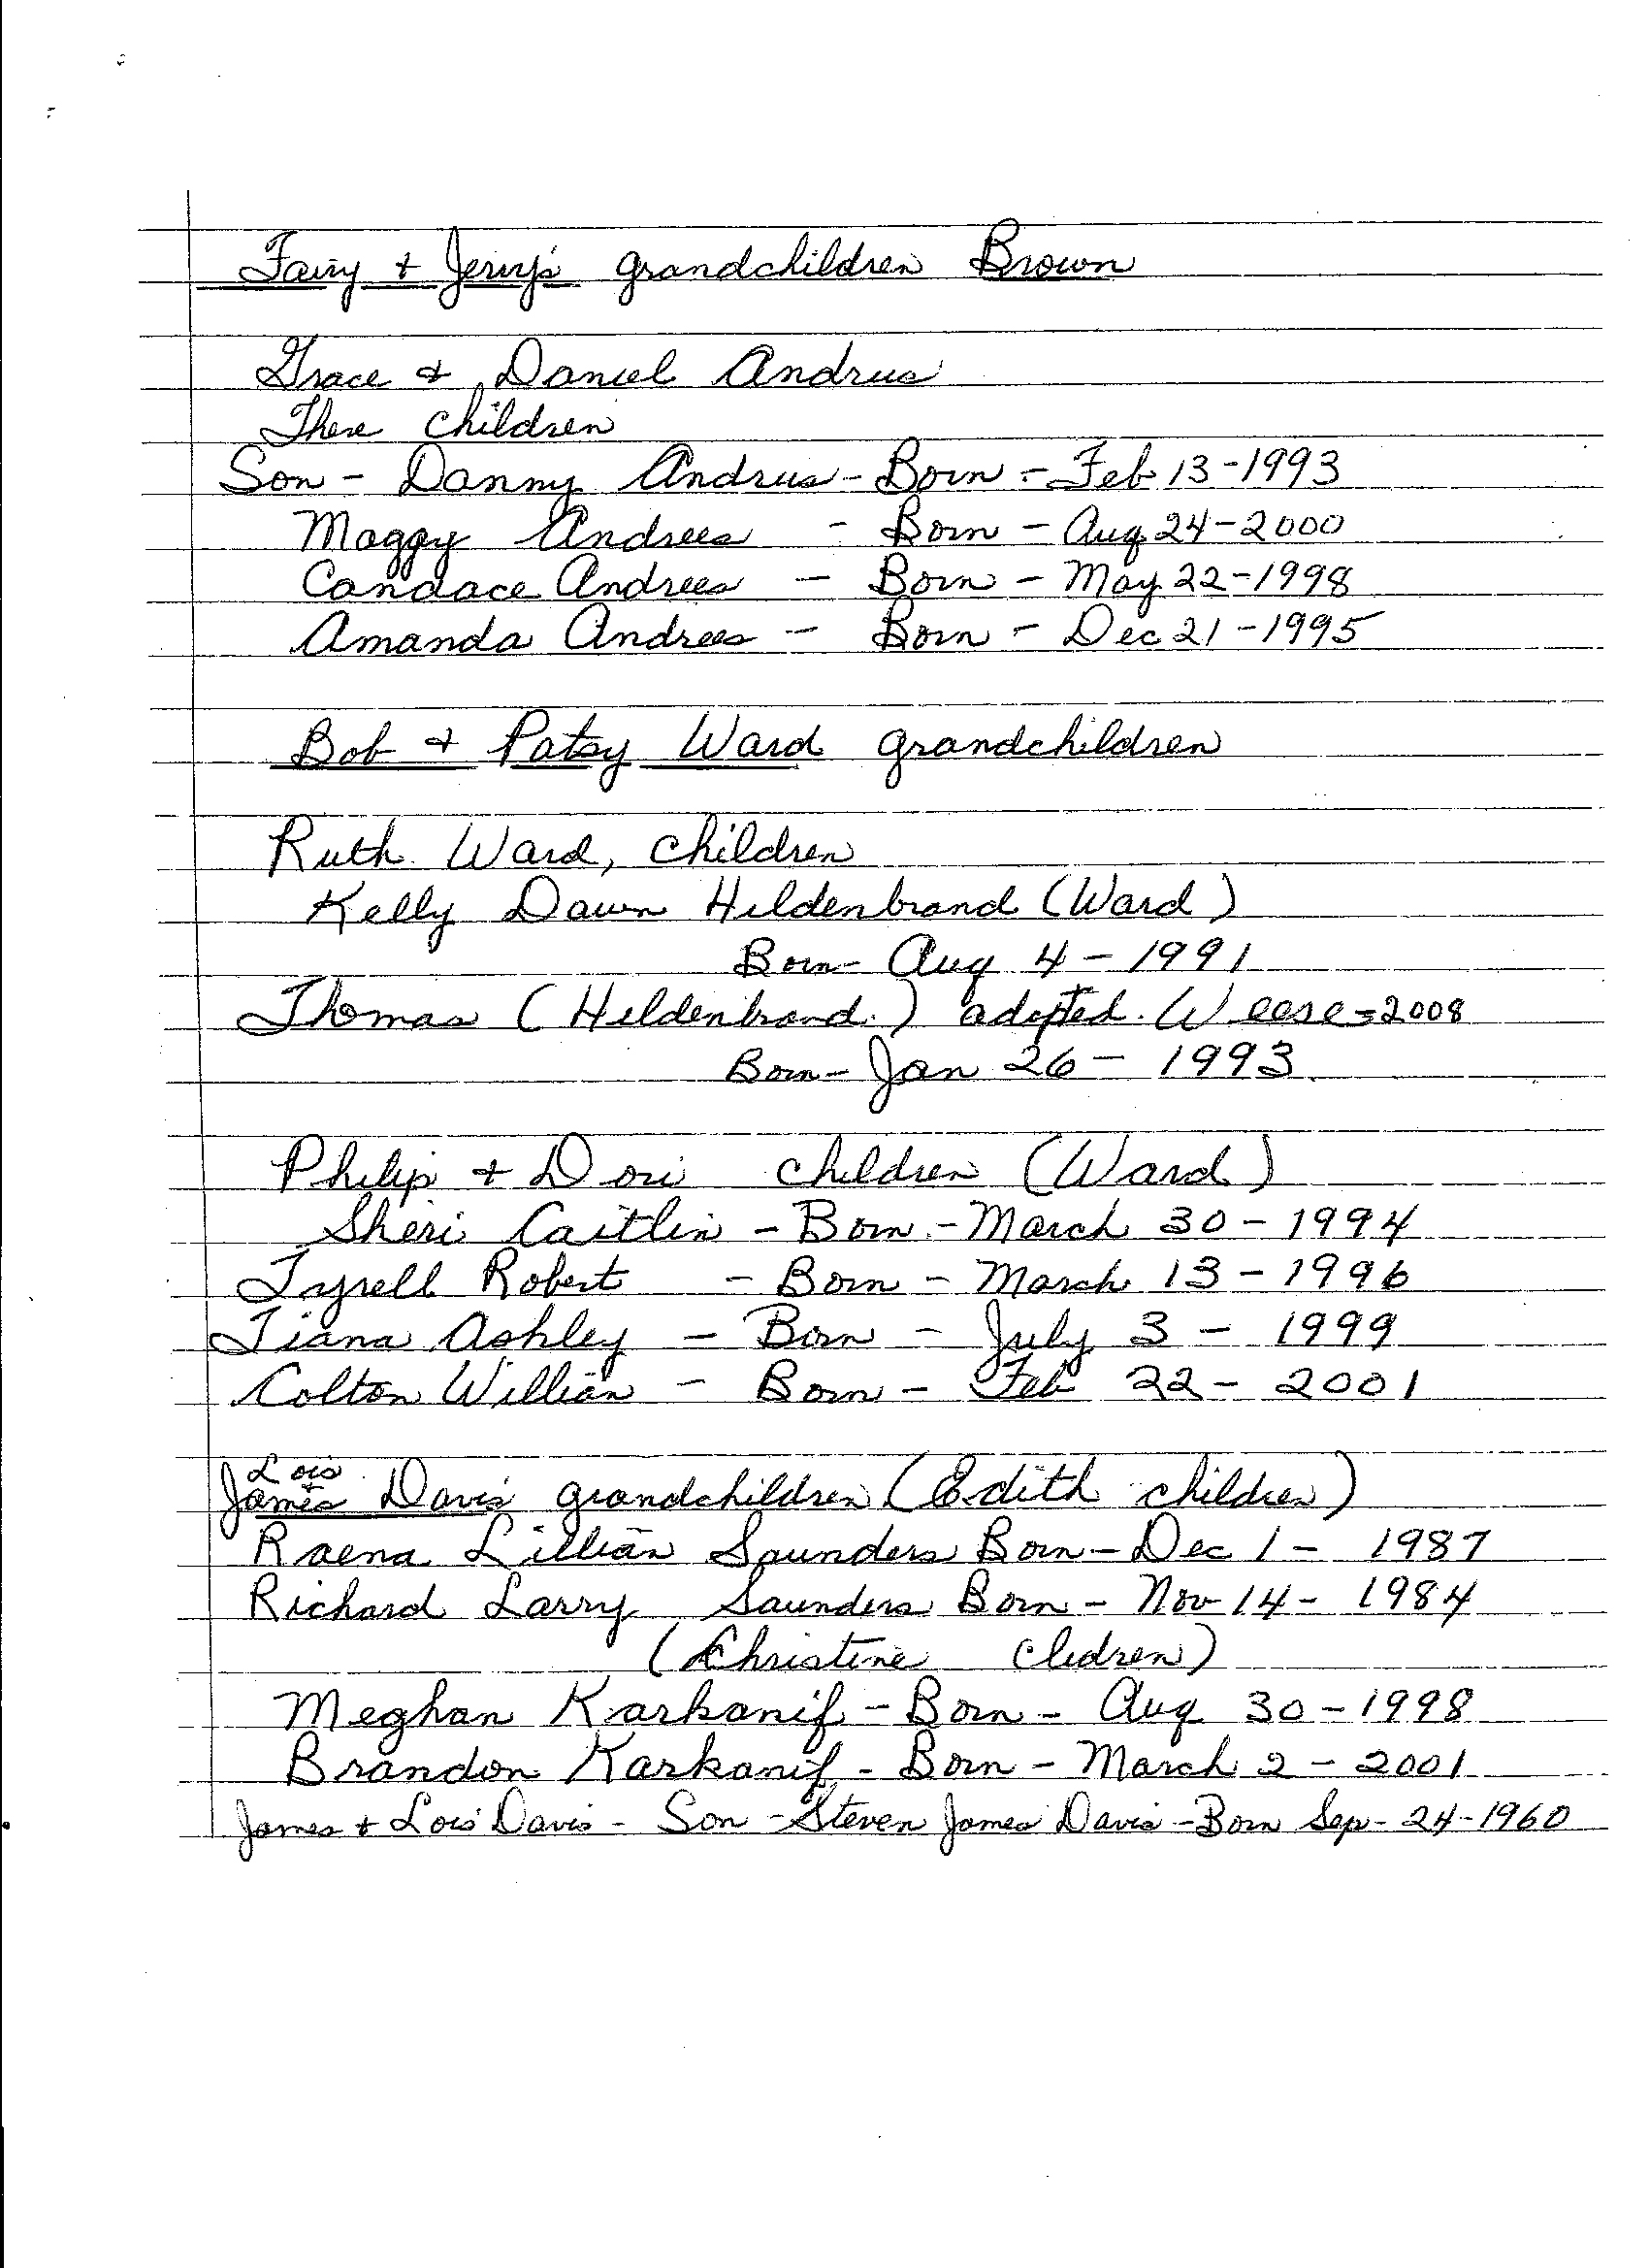 Fairy & Jerry's grandchildren Brown
Grace & Daniel Andrus
There children
Son - Danny Andrus - Born - Feb 13-1993
Maggy Andrees - Born - Aug 24-2000
Candace Andrees - Born - May 22-1998
Amanda Andrees - Born - Dec 21-1995
Bob & Patsy Ward grandchildren
Ruth Ward, children
Kelly Dawn Hildenbrand (Ward)
Born- Aug 4-1991
Thomas (Hildenbrand.) adopted. Weese=2008
Born- Jan 26-1993
Philip & Dori children (Ward)
Sheri Caitlin - Born - March 30-1994
Tyrell Robert - Born - March 13-1996
Tiana Ashley - Born - July 3-1999
Colton Willian - Born - Feb 22-2001
Lois
+
James Davis grandchildren (Edith children)
Raena Lillian Saunders Born- Dec 1-1987
Richard Larry Saunders Born- Nov 14-1984
(Christine cledren)
Meghan Karkanif - Born - Aug 30-1998
Brandon Karkanif - Born - March 2-2001
James + Lois Davis - Son - Steven James Davis - Born Sep- 24-1960